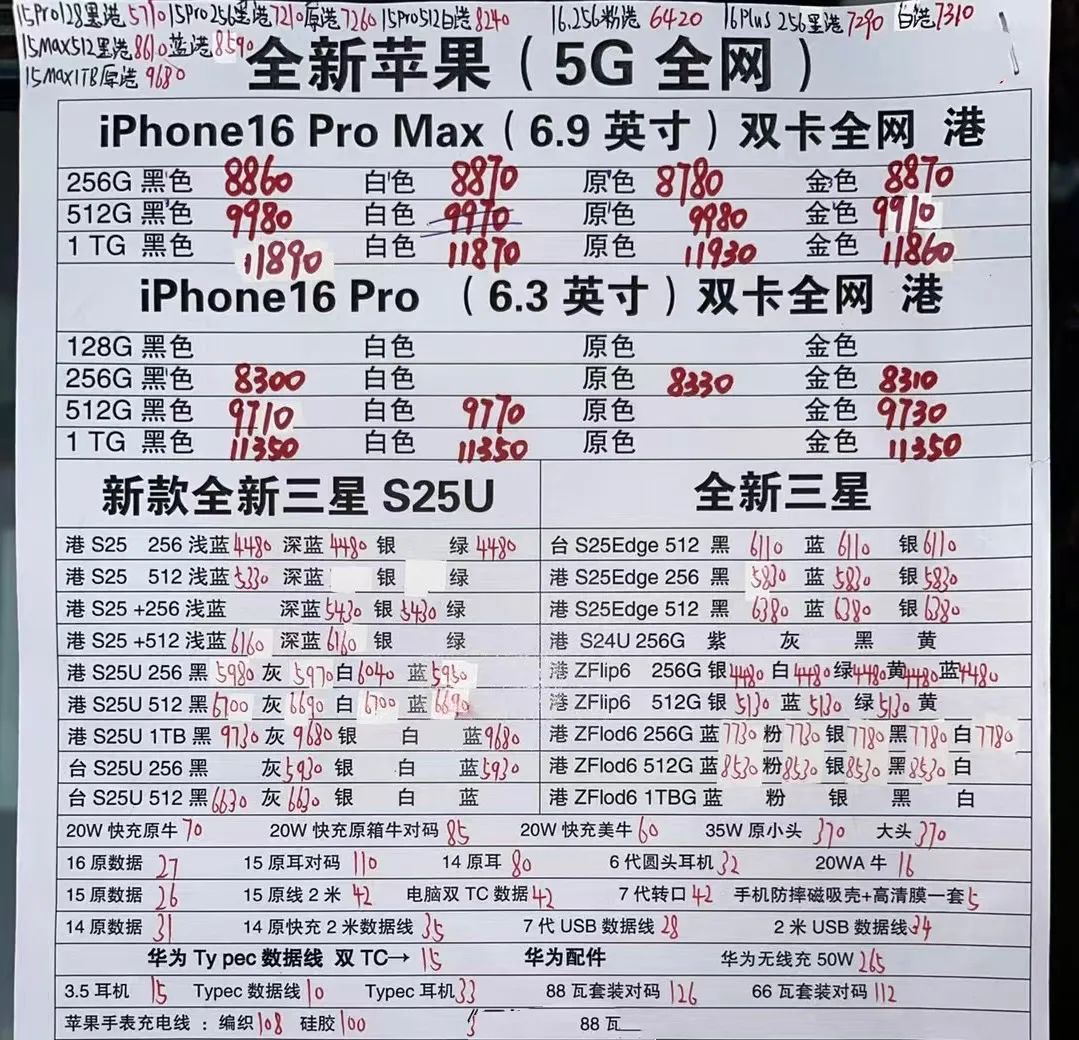 15Pro128墨港5710 15Pro256墨港7210 原港7260 15Pro512白港8240 16.256粉港 6420 16Plus 256墨港7290 白港7310
15Max512墨港8610 蓝港8590
15Max1TB原港 9680
全新苹果（5G 全网）
iPhone16 Pro Max（6.9 英寸）双卡全网 港
256G 黑色 8860 白色 8870 原色 8780 金色 8870
512G 黑色 9980 白色 9970 原色 9980 金色 9910
1 TG 黑色 11890 白色 11870 原色 11930 金色 11860
iPhone16 Pro （6.3 英寸）双卡全网 港
128G 黑色 白色 原色 金色
256G 黑色 8300 白色 原色 8330 金色 8310
512G 黑色 9710 白色 9770 原色 金色 9730
1 TG 黑色 11350 白色 11350 原色 金色 11350
新款全新三星 S25U
港 S25 256 浅蓝4480 深蓝4480 银 绿 4480
港 S25 512 浅蓝5330 深蓝 银 绿
港 S25 +256 浅蓝 深蓝5430 银5430 绿
港 S25 +512 浅蓝6160 深蓝6160 银 绿
港 S25U 256 黑 5980 灰 5970 白6040 蓝5950
港 S25U 512 黑6700 灰 6690 白 6700 蓝 6690
港 S25U 1TB 黑 9730 灰 9680 银 白 蓝9680
台 S25U 256 黑 灰5930 银 白 蓝5930
台 S25U 512 黑6630 灰 6630 银 白 蓝
全新三星
台 S25Edge 512 黑 6110 蓝 6110 银6110
港 S25Edge 256 黑 5830 蓝 5830 银5830
港 S25Edge 512 黑 6380 蓝 6380 银6380
港 S24U 256G 紫 灰 黑 黄
港 ZFlip6 256G 银4480 白4480 绿4480 黄4480 蓝4480
港 ZFlip6 512G 银 5130 蓝 5130 绿 5130 黄
港 ZFlod6 256G 蓝7730 粉7730 银7780 黑7780 白7780
港 ZFlod6 512G 蓝8530 粉8530 银8530 黑8530 白
港 ZFlod6 1TBG 蓝 粉 银 黑 白
20W 快充原牛 70 20W 快充原箱牛对码 85 20W 快充美牛 60 35W 原小头 370 大头 370
16 原数据 27 15 原耳对码 110 14 原耳 80 6 代圆头耳机 32 20WA 牛 16
15 原数据 26 15 原线 2 米 42 电脑双 TC 数据 42 7 代转口 42 手机防摔磁吸壳+高清膜一套 5
14 原数据 31 14 原快充 2 米数据线 35 7 代 USB 数据线 28 2 米 USB 数据线 34
华为 Ty pec 数据线 双 TC→ 15 华为配件 华为无线充 50W 265
3.5 耳机 15 Typec 数据线 10 Typec 耳机 33 88 瓦套装对码 126 66 瓦套装对码 112
苹果手表充电线 ：编织 108 硅胶 100 88 瓦